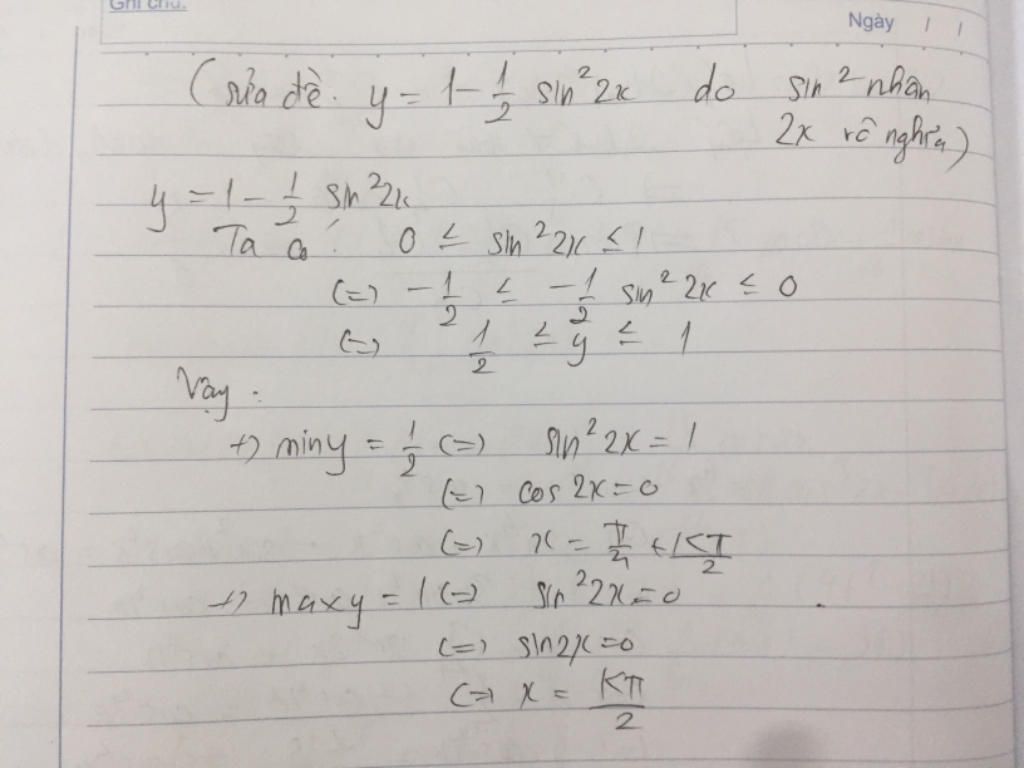 Ghi chú:
Ngày / /
(sửa đề. y = 1 - 1/2 sin²2x do sin² nhân
2x vô nghĩa)
y = 1 - 1/2 sin²2x
Ta có: 0 ≤ sin²2x ≤ 1
(=) -1/2 ≤ -1/2 sin²2x ≤ 0
(=) 1/2 ≤ y ≤ 1
Vậy:
+) min y = 1/2 (=) sin²2x = 1
(=) cos 2x = 0
(=) x = π/4 + kπ/2
+) max y = 1 (=) sin²2x = 0
(=) sin2x = 0
(=) x = kπ/2